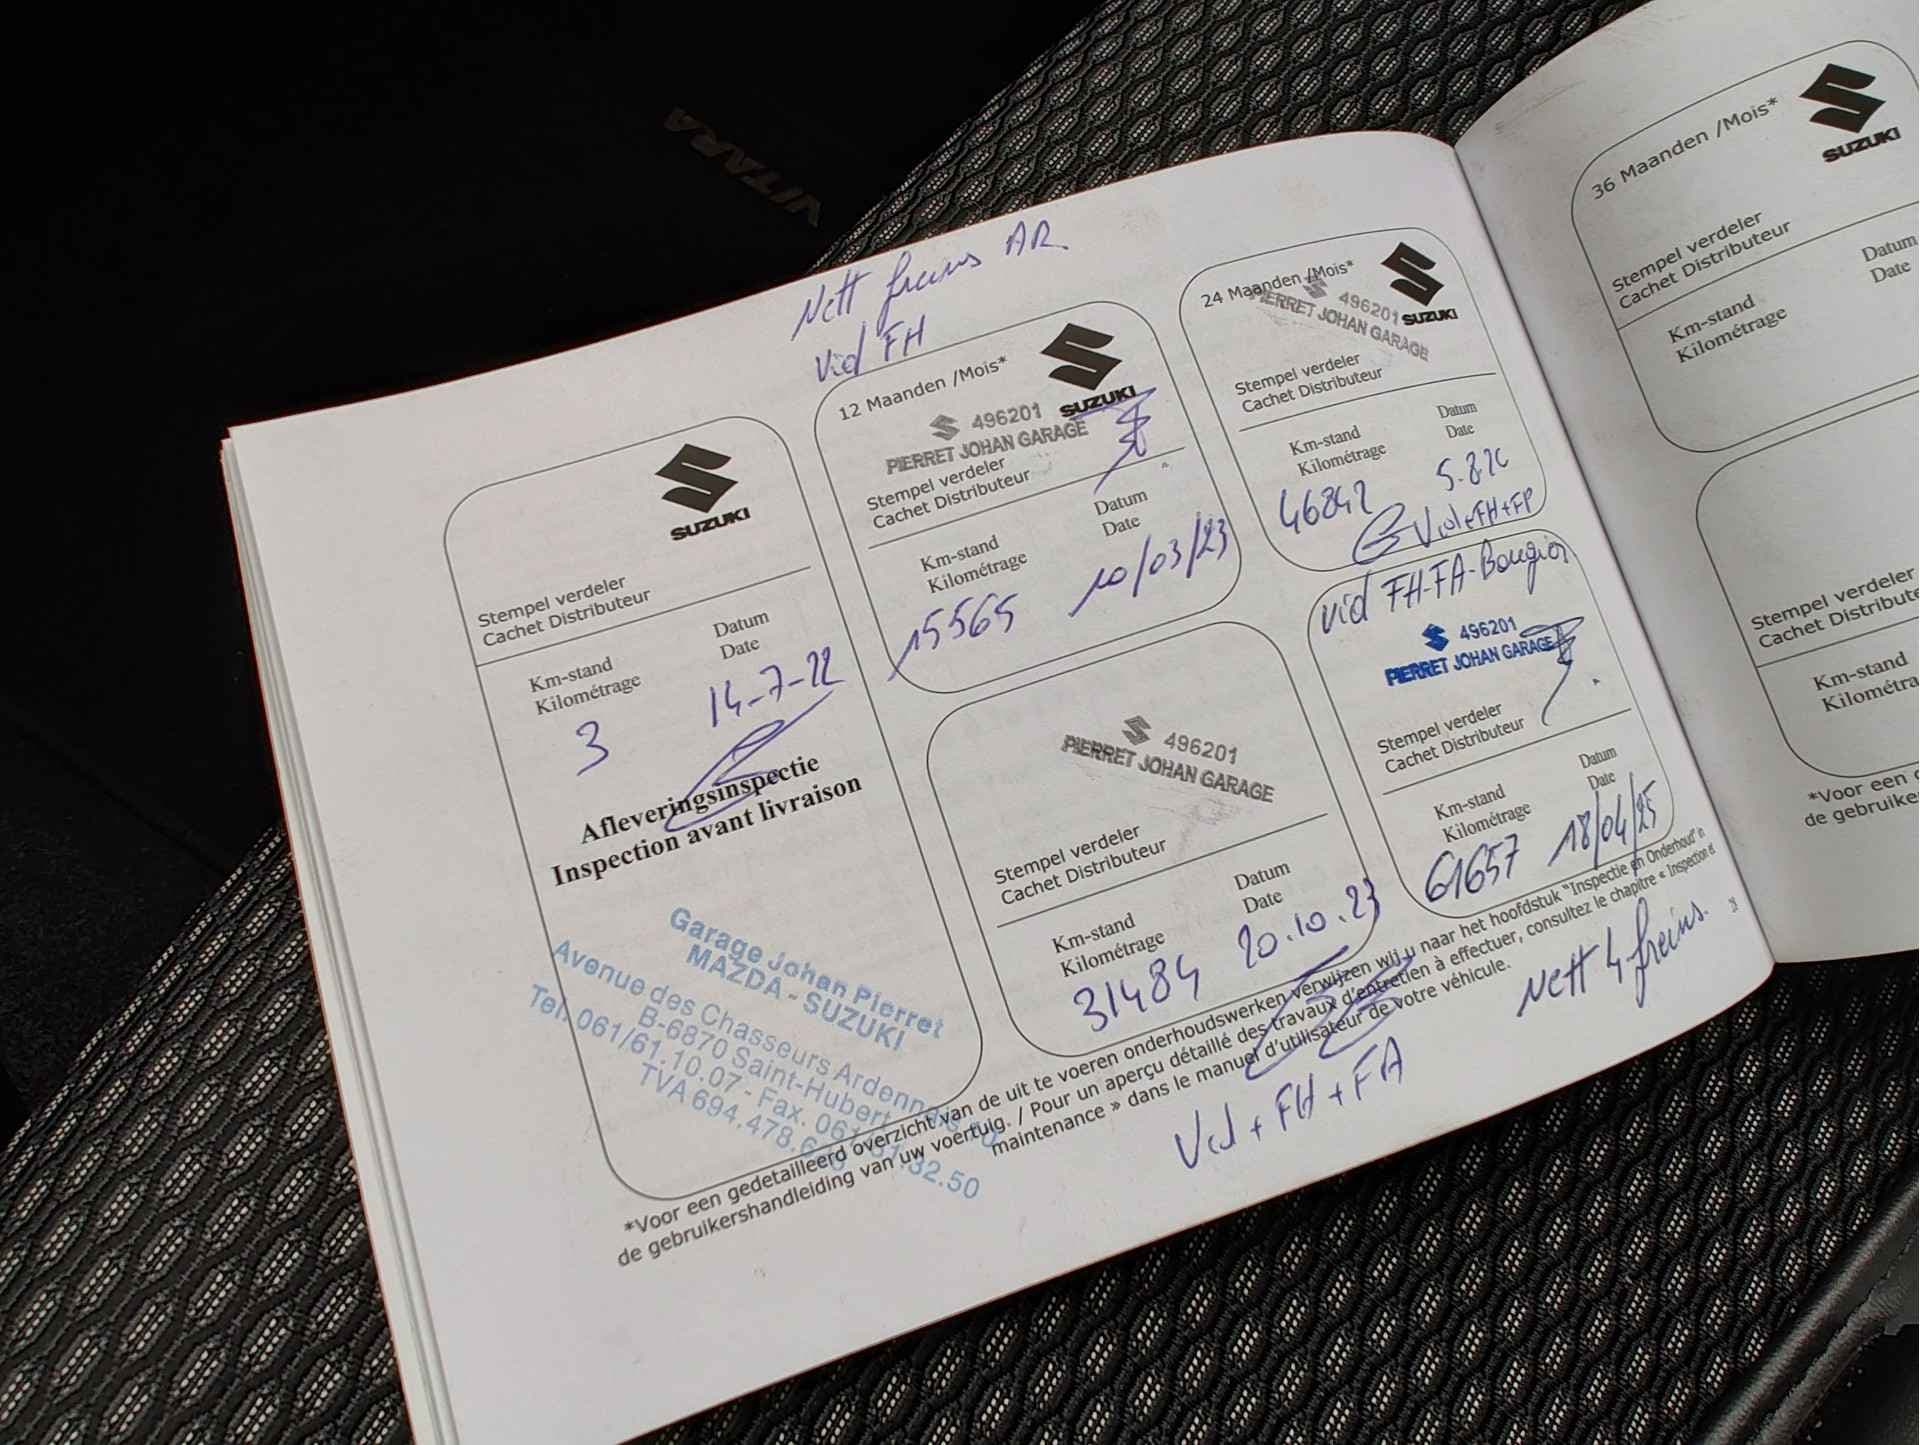 VITARA
Nett freins AR
Vid FH
SUZUKI
Stempel verdeler
Cachet Distributeur
Km-stand
Kilométrage
Datum
Date
3
14-7-22
Afleveringsinspectie
Inspection avant livraison
Garage Johan Pierret
MAZDA - SUZUKI
Avenue des Chasseurs Ardennais
B-6870 Saint-Hubert
Tel. 061/61.10.07 - Fax. 061/61.32.50
TVA 694.478.6
12 Maanden /Mois*
SUZUKI
496201
PIERRET JOHAN GARAGE
Stempel verdeler
Cachet Distributeur
Km-stand
Kilométrage
Datum
Date
15565
10/03/23
496201
PIERRET JOHAN GARAGE
Stempel verdeler
Cachet Distributeur
Km-stand
Kilométrage
Datum
Date
31484
20.10.23
Vid + FH + FA
24 Maanden /Mois*
SUZUKI
496201
PIERRET JOHAN GARAGE
Stempel verdeler
Cachet Distributeur
Km-stand
Kilométrage
Datum
Date
46842
Vid+FH+FP
vid FH-FA-Bougies
496201
PIERRET JOHAN GARAGE
Stempel verdeler
Cachet Distributeur
Km-stand
Kilométrage
Datum
Date
61657
18/04/25
Nett 4 freins.
*Voor een gedetailleerd overzicht van de uit te voeren onderhoudswerken verwijzen wij u naar het hoofdstuk "Inspectie en Onderhoud" in
de gebruikershandleiding van uw voertuig. / Pour un aperçu détaillé des travaux d'entretien à effectuer, consultez le chapitre « Inspection et
maintenance » dans le manuel d'utilisateur de votre véhicule.
36 Maanden /Mois*
SUZUKI
Stempel verdeler
Cachet Distributeur
Km-stand
Kilométrage
Datum
Date
Stempel verdeler
Cachet Distribute
Km-stand
Kilométra
*Voor een
de gebruiker